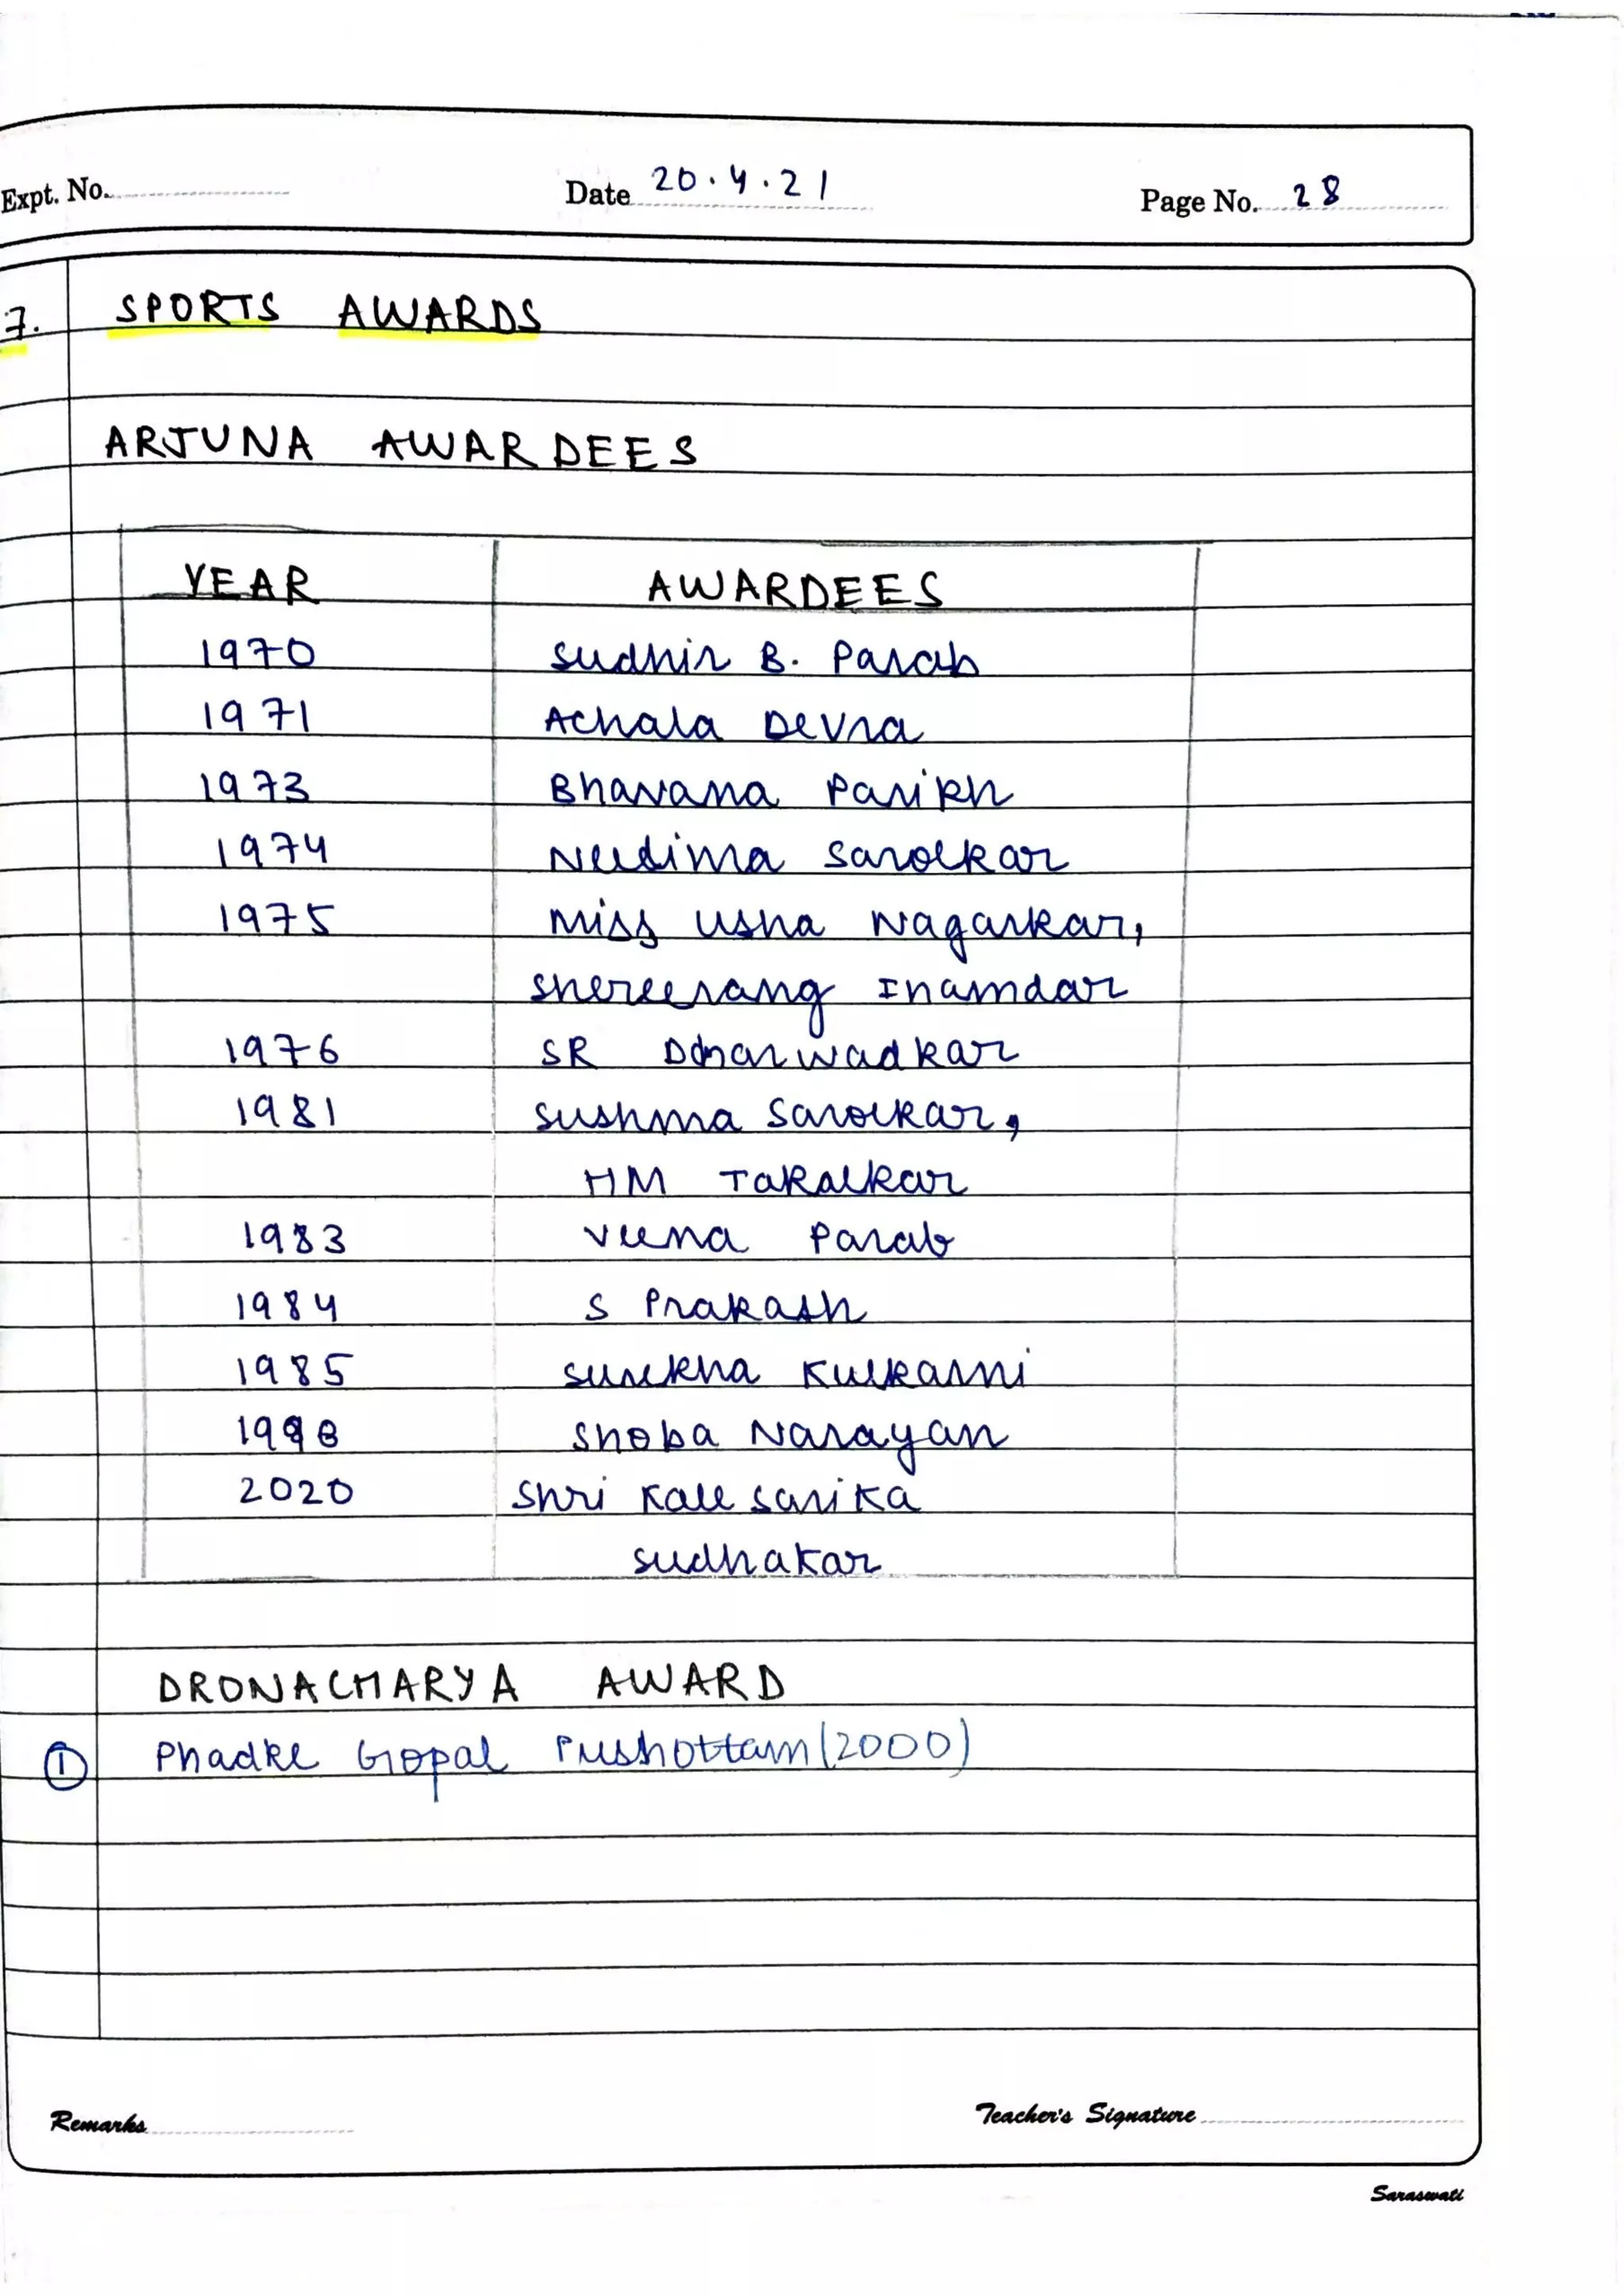 Expt. No. Date 20.4.21 Page No. 28
7. SPORTS AWARDS
ARJUNA AWARDEES
YEAR AWARDEES
1970 Sudhir B. Parab
1971 Achala Devra
1973 Bhavana Parikh
1974 Neelima Sarolkar
1975 Miss Usha Nagarkar,
Shereerang Inamdar
1976 SR Dharwadkar
1981 Sushma Sarolkar,
HM Takalkar
1983 Veena Parab
1984 S Prakash
1985 Surekha Kulkarni
1998 Shoba Narayan
2020 Shri Kale Sarika
Sudhakar
DRONACHARYA AWARD
① Phadke Gopal Prushottam (2000)
Remarks Teacher's Signature
Saraswati